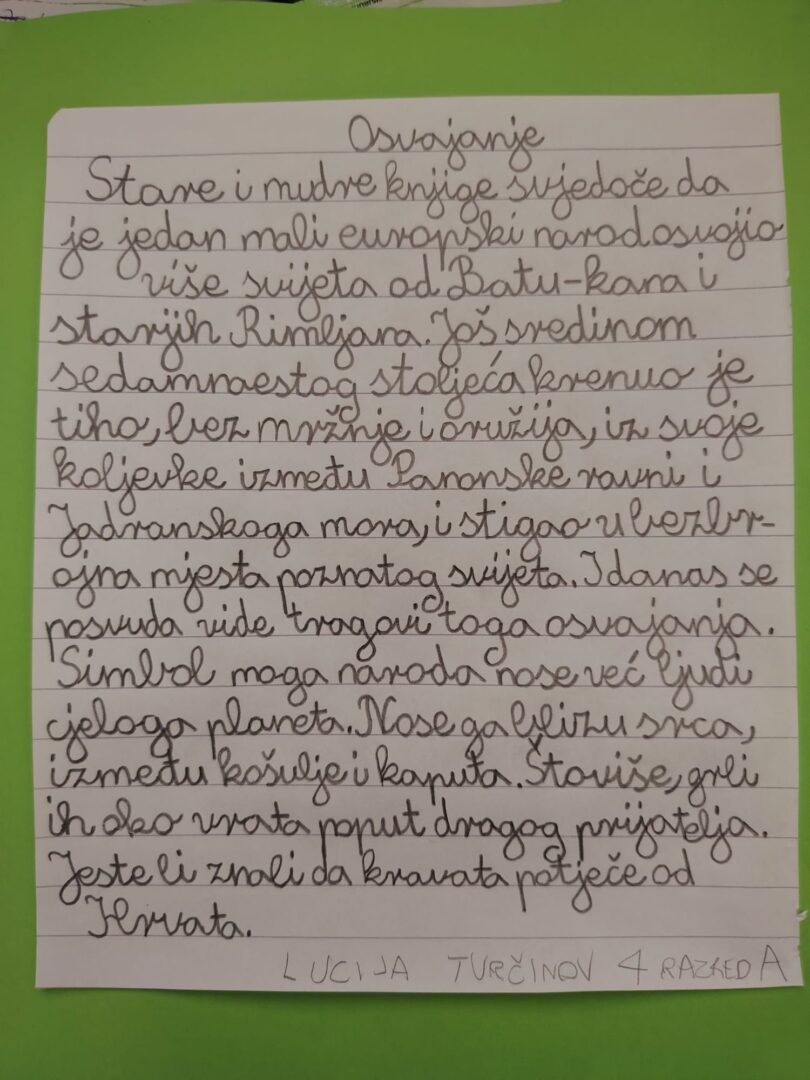 Osvajanje
Stare i mudre knjige svjedoče da
je jedan mali europski narod osvojio
više svijeta od Batu-kana i
starjih Rimljana. Još sredinom
sedamnaestog stoljeća krenuo je
tiho, bez mržnje i oružija, iz svoje
koljevke između Panonske ravni i
Jadranskoga mora, i stigao u bezbr-
ojna mjesta poznatog svijeta. I danas se
posvuda vide tragovi toga osvajanja.
Simbol moga naroda nose već ljudi
cjeloga planeta. Nose ga blizu srca,
između košulje i kaputa. Štoviše, grli
ih oko vrata poput dragog prijatelja.
Jeste li znali da kravata potječe od
Hrvata.
LUCIJA TURČINOV 4 RAZRED A